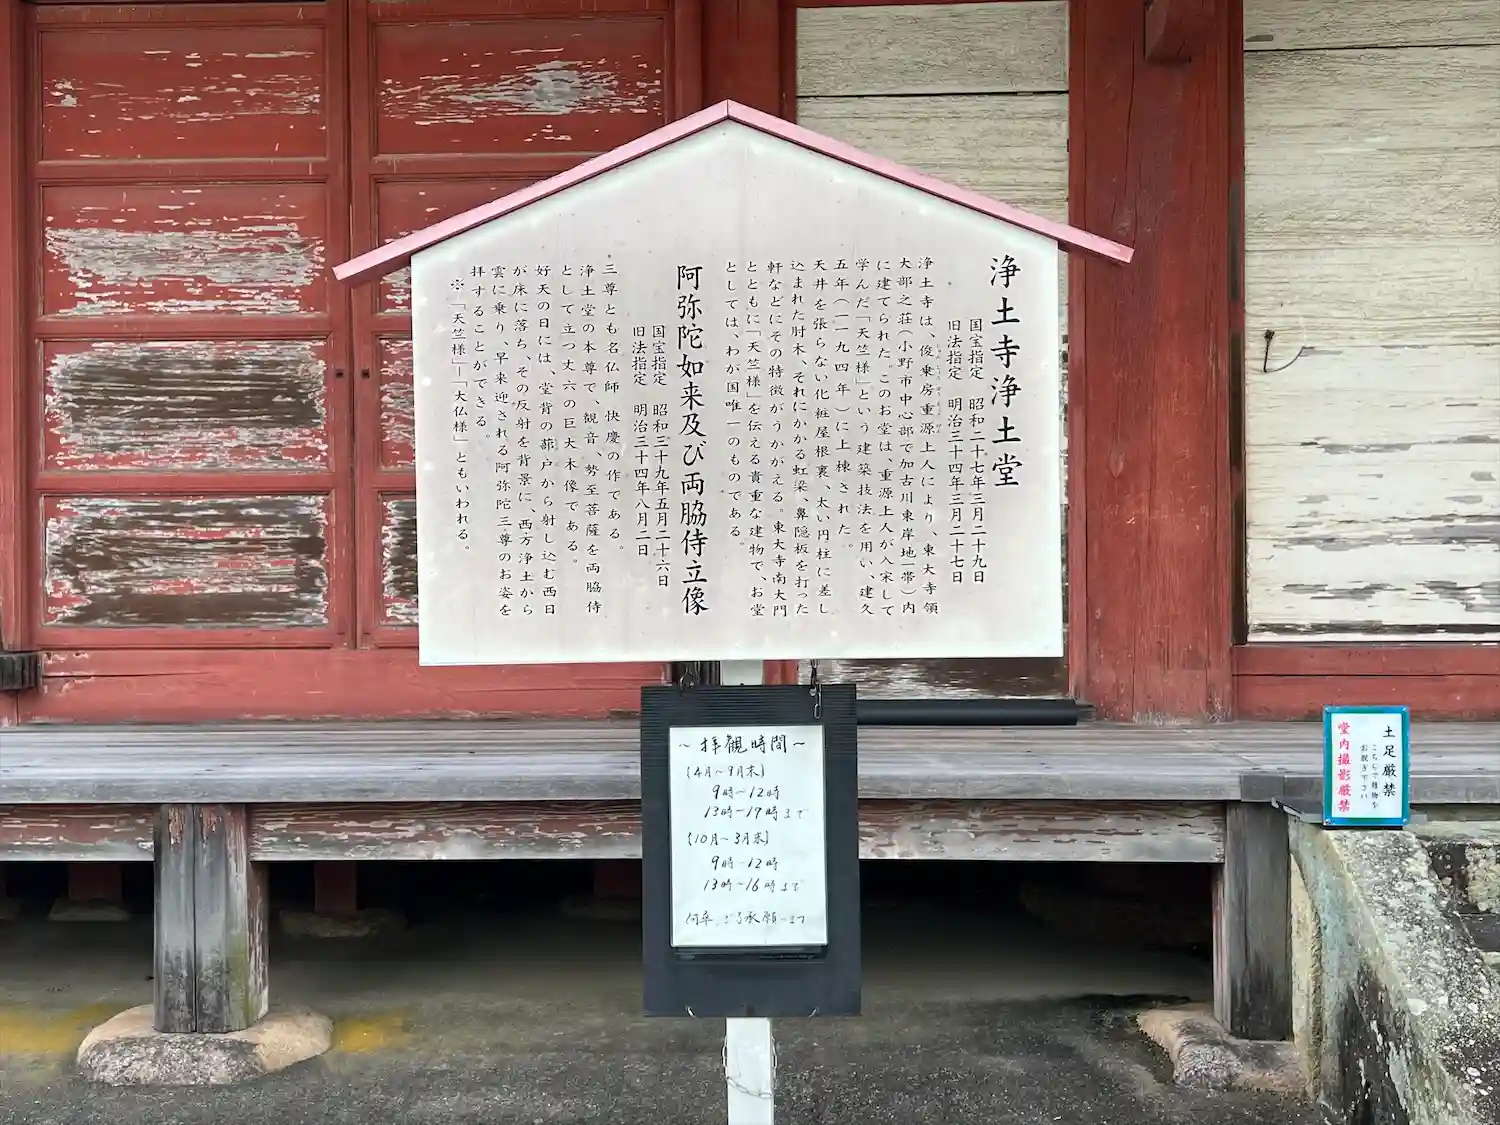 浄土寺浄土堂
国宝指定 昭和二十七年三月二十九日
旧法指定 明治三十四年三月二十七日
浄土寺は、俊乗房重源上人により、東大寺領
大部之荘(小野市中心部で加古川東岸地一帯)内
に建てられた。このお堂は、重源上人が入宋して
学んだ「天竺様」という建築技法を用い、建久
五年(一一九四年)に上棟された。
天井を張らない化粧屋根裏、太い円柱に差し
込まれた肘木、それにかかる虹梁、鼻隠板を打った
軒などにその特徴がうかがえる。東大寺南大門
とともに「天竺様」を伝える貴重な建物で、お堂
としては、わが国唯一のものである。
阿弥陀如来及び両脇侍立像
国宝指定 昭和三十九年五月二十六日
旧法指定 明治三十四年八月二日
三尊とも名仏師 快慶の作である。
浄土堂の本尊で、観音、勢至菩薩を両脇侍
として立つ丈六の巨大木像である。
好天の日には、堂背の蔀戸から射し込む西日
が床に落ち、その反射を背景に、西方浄土から
雲に乗り、早来迎される阿弥陀三尊のお姿を
拝することができる。
※「天竺様」―「大仏様」ともいわれる。
～拝観時間～
(4月～9月末)
9時～12時
13時～17時まで
(10月～3月末)
9時～12時
13時～16時まで
何卒ご了承願います
土足厳禁
こちらで履物を
お脱ぎ下さい
堂内撮影厳禁